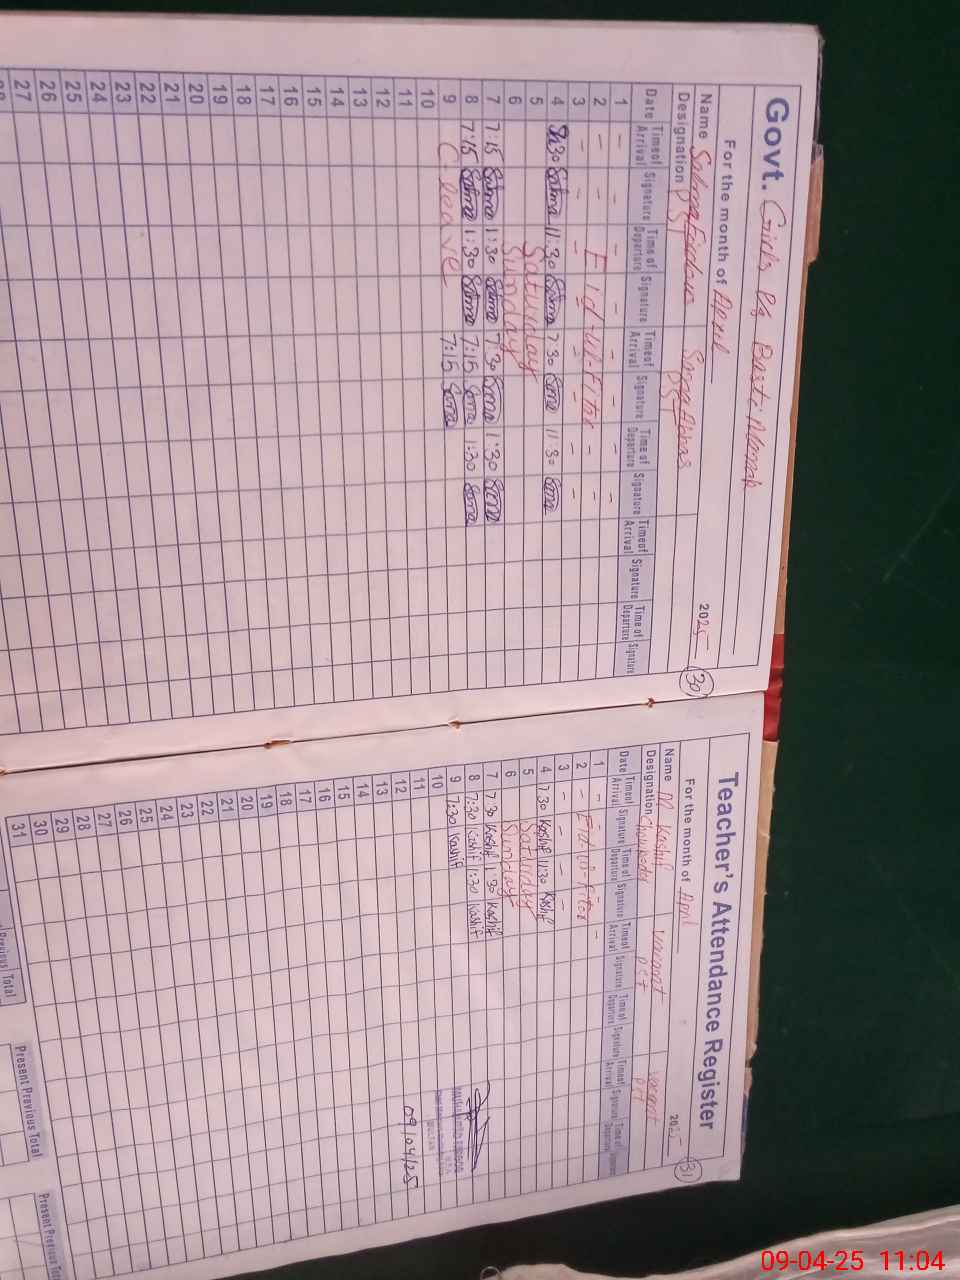 Govt. Girls P/S Basti
For the month of April 2025 (30)
Name Salma
Designation PST PST
Date Time of Arrival Signature Time of Departure Signature Time of Arrival Signature Time of Departure Signature Time of Arrival Signature Time of Departure Signature
1 - - - - - - - -
2 - - Eid-ul-Fitar - -
3 - - - - - - -
4 7:30 Salma 11:30 Salma 7:30 11:30
5 Saturday
6 Sunday
7 7:15 Salma 1:30 Salma 7:30 1:30
8 7:15 Salma 1:30 Salma 7:15 1:30
9 C. leave 7:15
10
11
12
13
14
15
16
17
18
19
20
21
22
23
24
25
26
27
Teacher's Attendance Register
For the month of April 2025 (31)
Name M Kashif vacant vacant
Designation PST PST
Date Time of Arrival Signature Time of Departure Signature Time of Arrival Signature Time of Departure Signature Time of Arrival Signature Time of Departure Signature
1 - - - - -
2 - Eid-ul-Fitar
3 - - - -
4 7:30 Kashif 11:30 Kashif
5 Saturday
6 Sunday
7 7:30 Kashif 1:30 Kashif
8 7:30 Kashif 1:30 Kashif
9 7:30 Kashif
10
11
12
13
14
15
16
17
18
19
20
21
22
23
24
25
26
27
28
29
30
31
09/04/25
Previous Total
Present Previous Total
Present Previous
09-04-25 11:04